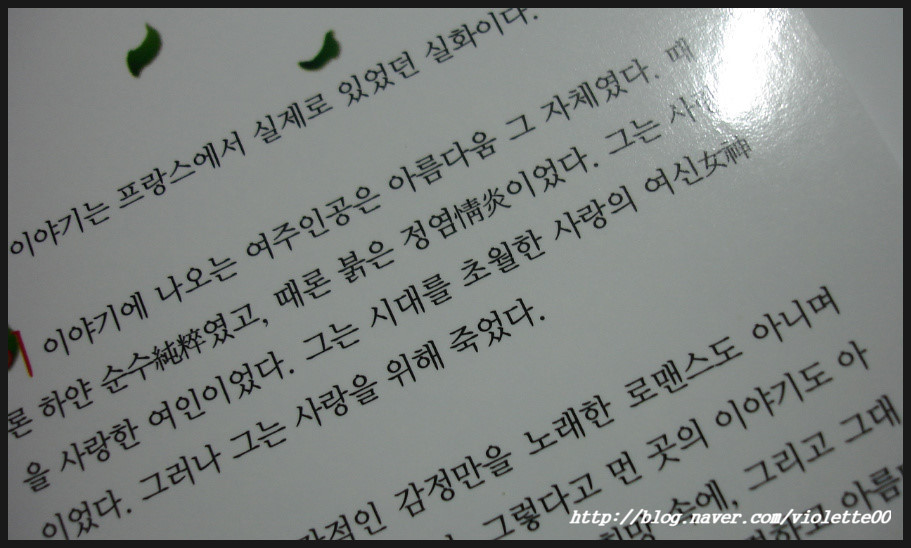 이야기는 프랑스에서 실제로 있었던 실화이다.
이야기에 나오는 여주인공은 아름다움 그 자체였다. 때
론 하얀 순수純粹였고, 때론 붉은 정염情炎이었다. 그는
을 사랑한 여인이었다. 그는 시대를 초월한 사랑의 여신女神
이었다. 그러나 그는 사랑을 위해 죽었다.
감정만을 노래한 로맨스도 아니며
그렇다고 먼 곳의 이야기도 아
속에, 그리고 그대
http://blog.naver.com/violette00